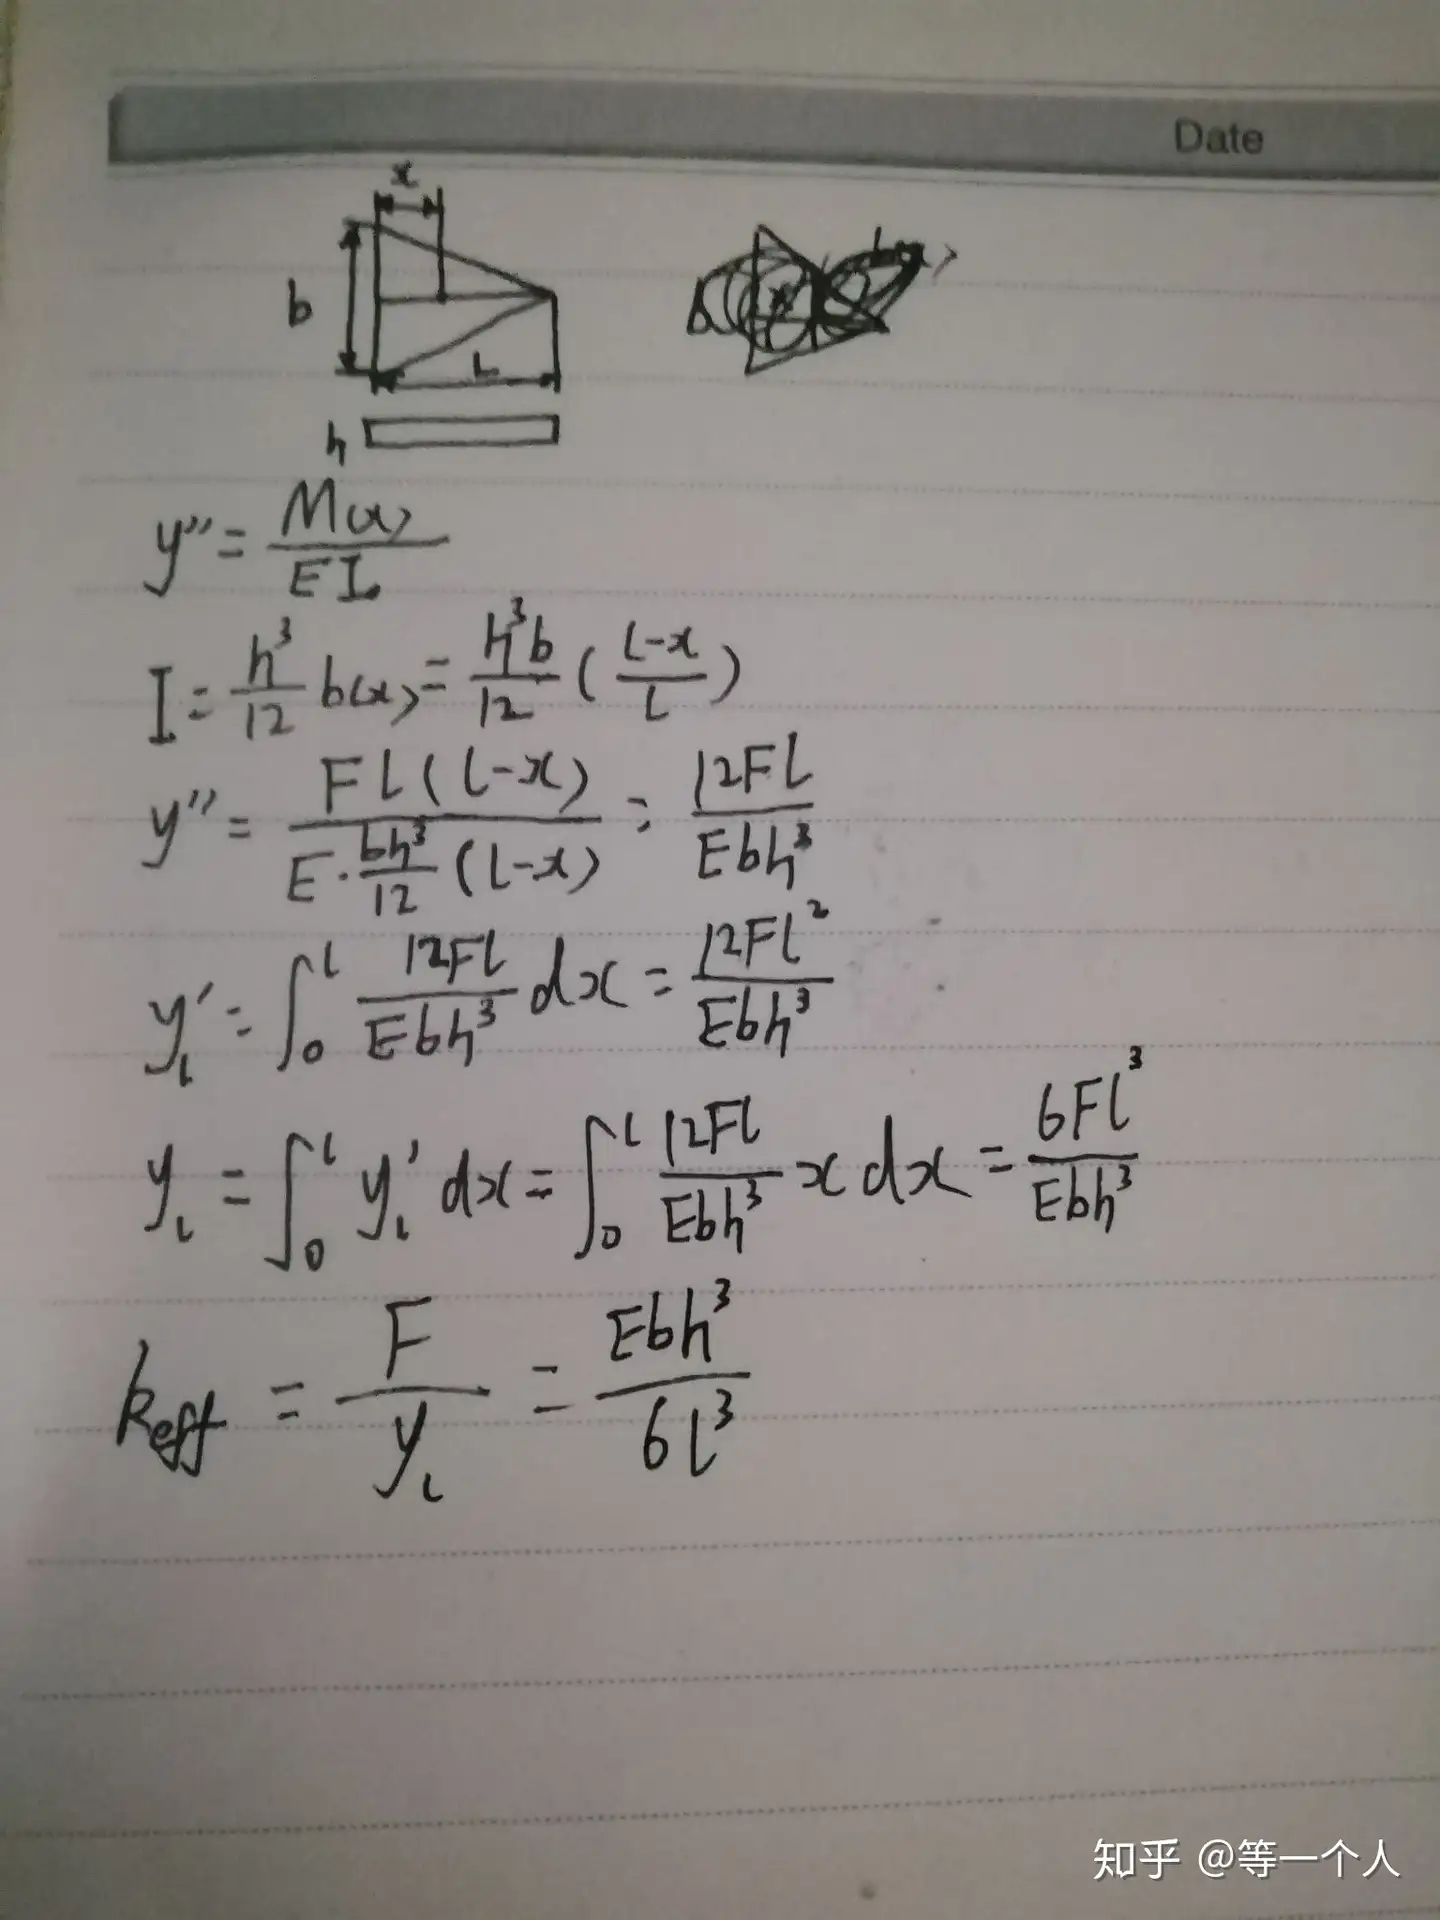 Date
x
b
L
h
y'' = M(x) / EI
I = h³/12 b(x) = h³b/12 ( (l-x)/l )
y'' = Fl(l-x) / (E·bh³/12 (l-x)) = 12Fl / Ebh³
y'ₗ = ∫₀ˡ 12Fl/Ebh³ dx = 12Fl²/Ebh³
yₗ = ∫₀ˡ yₗ' dx = ∫₀ˡ 12Fl/Ebh³ x dx = 6Fl³/Ebh³
k_eff = F/yₗ = Ebh³/6l³
知乎 @等一个人